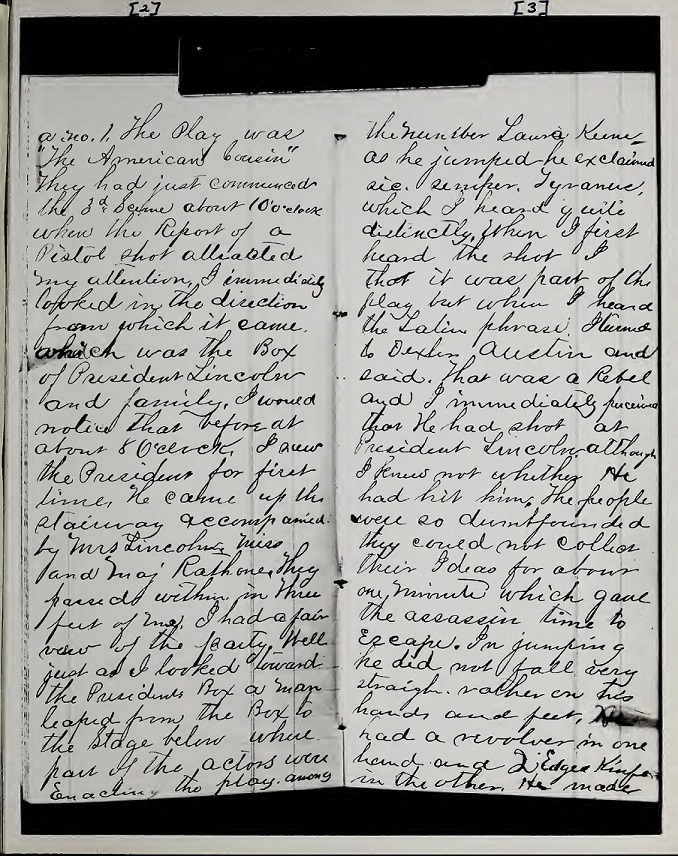 [2]
a no. 1. The Play was
"The American Cousin"
They had just commenced
the 3d Scene about 10 O'clock
when the Report of a
Pistol shot attracted
my attention, I immediately
looked in the direction
from which it came.
which was the Box
of President Lincoln
and family, I would
notice that before at
about 8 O'clock, I saw
the President for first
time, He came up the
stairway accompanied
by Mrs Lincoln, Miss
and Maj Rathone, They
passed within in three
feet of me, I had a fair
view of the party. Well
just as I looked toward
the Presidents Box a man
leaped from the Box to
the Stage below where
part of the actors were
Enacting the play. among
[3]
the number Laura Keene
as he jumped he exclaimed
sic. semper. Tyranus,
which I heard quite
distinctly, When I first
heard the shot I
that it was part of the
play but when I heard
the Latin phrase, I turned
to Dexter Austin and
said. That was a Rebel
and I immediately perceived
that He had shot at
President Lincoln, although
I knew not whether He
had hit him, The people
were so dumtfounded
they could not collect
their Ideas for about
one, minute which gave
the assassin time to
Escape. In jumping
he did not fall very
straight. rather on his
hands and feet, He
had a revolver in one
hand and 2 Edged Knife
in the other. He made